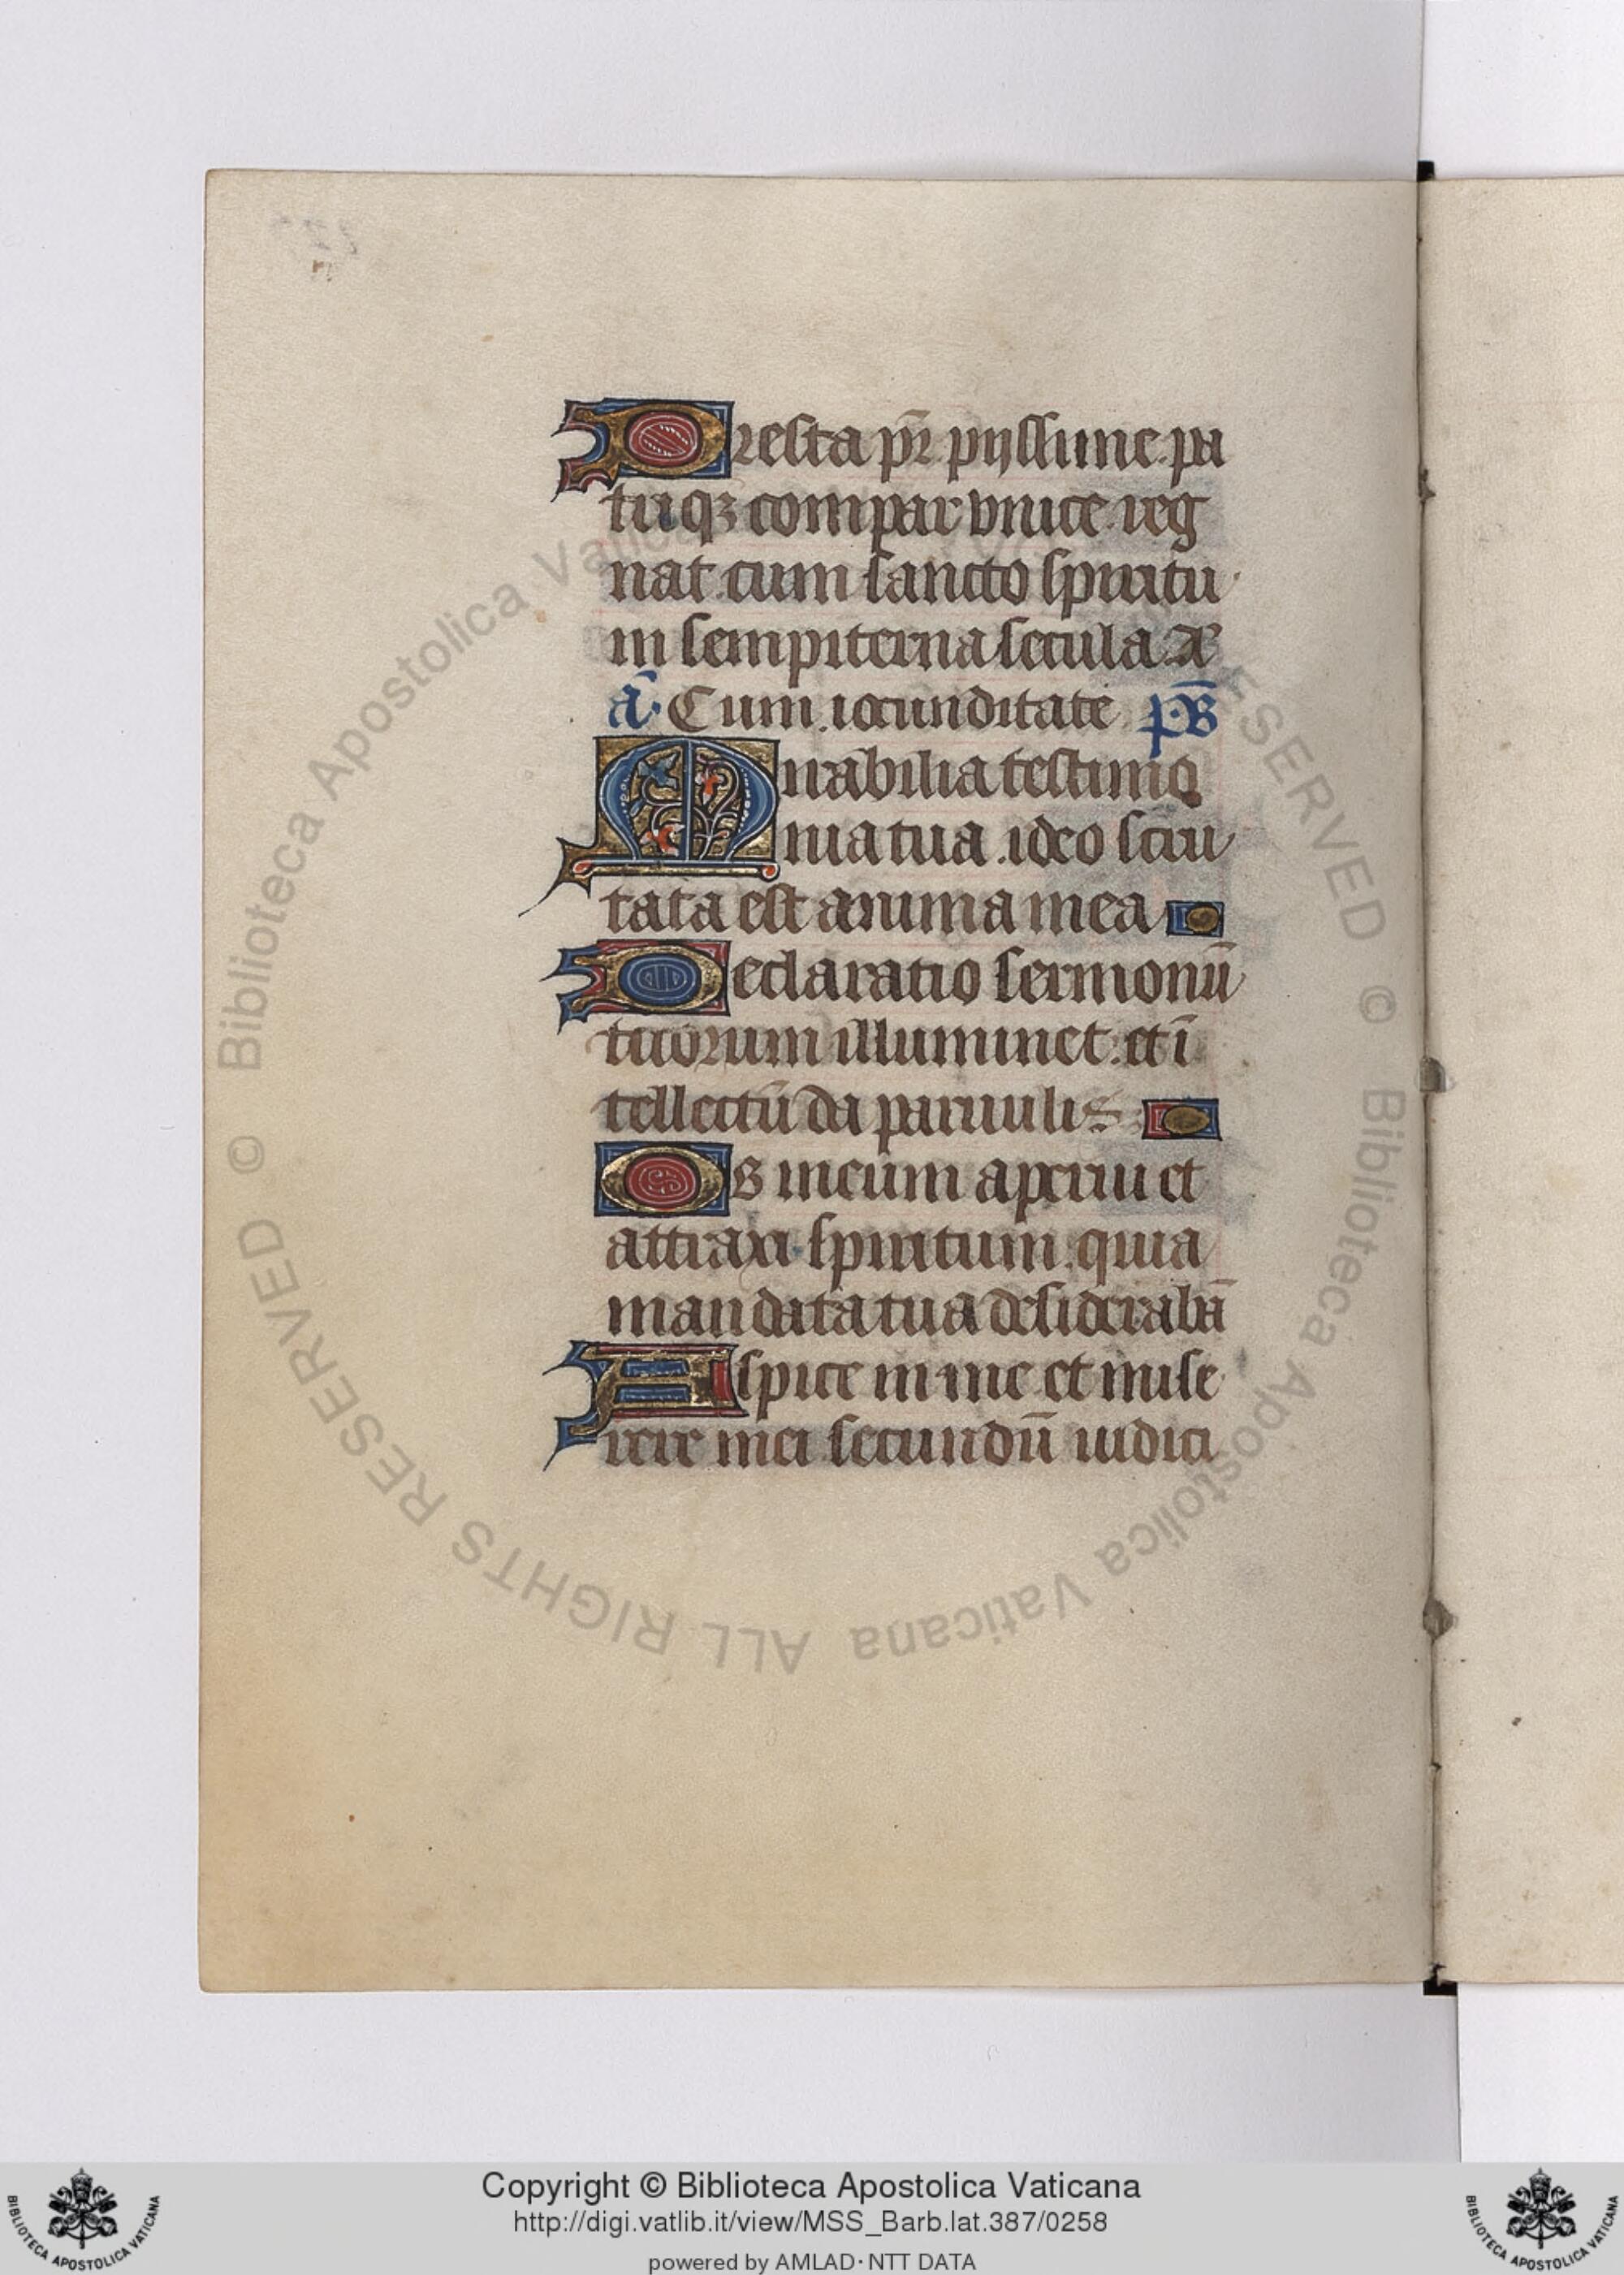 Presta pr̄ pijssime pa
triqꝫ compar vnice reg
nat cum sancto spiritu
in sempiterna secula a
ā Cum iocunditate p̄s
Mirabilia testimo
nia tua ideo scru
tata est anima mea
Declaratio sermonū
tuorum illuminet et ī
tellectū da paruulis
Os meum aperui et
attraxi spiritum quia
mandata tua desiderabā
Aspice in me et mise
rere mei secundū iudici
© Biblioteca Apostolica Vaticana ALL RIGHTS RESERVED © Biblioteca Apostolica Vaticana ALL RIGHTS RESERVED
Copyright © Biblioteca Apostolica Vaticana
http://digi.vatlib.it/view/MSS_Barb.lat.387/0258
powered by AMLAD·NTT DATA
BIBLIOTECA APOSTOLICA VATICANA
BIBLIOTECA APOSTOLICA VATICANA